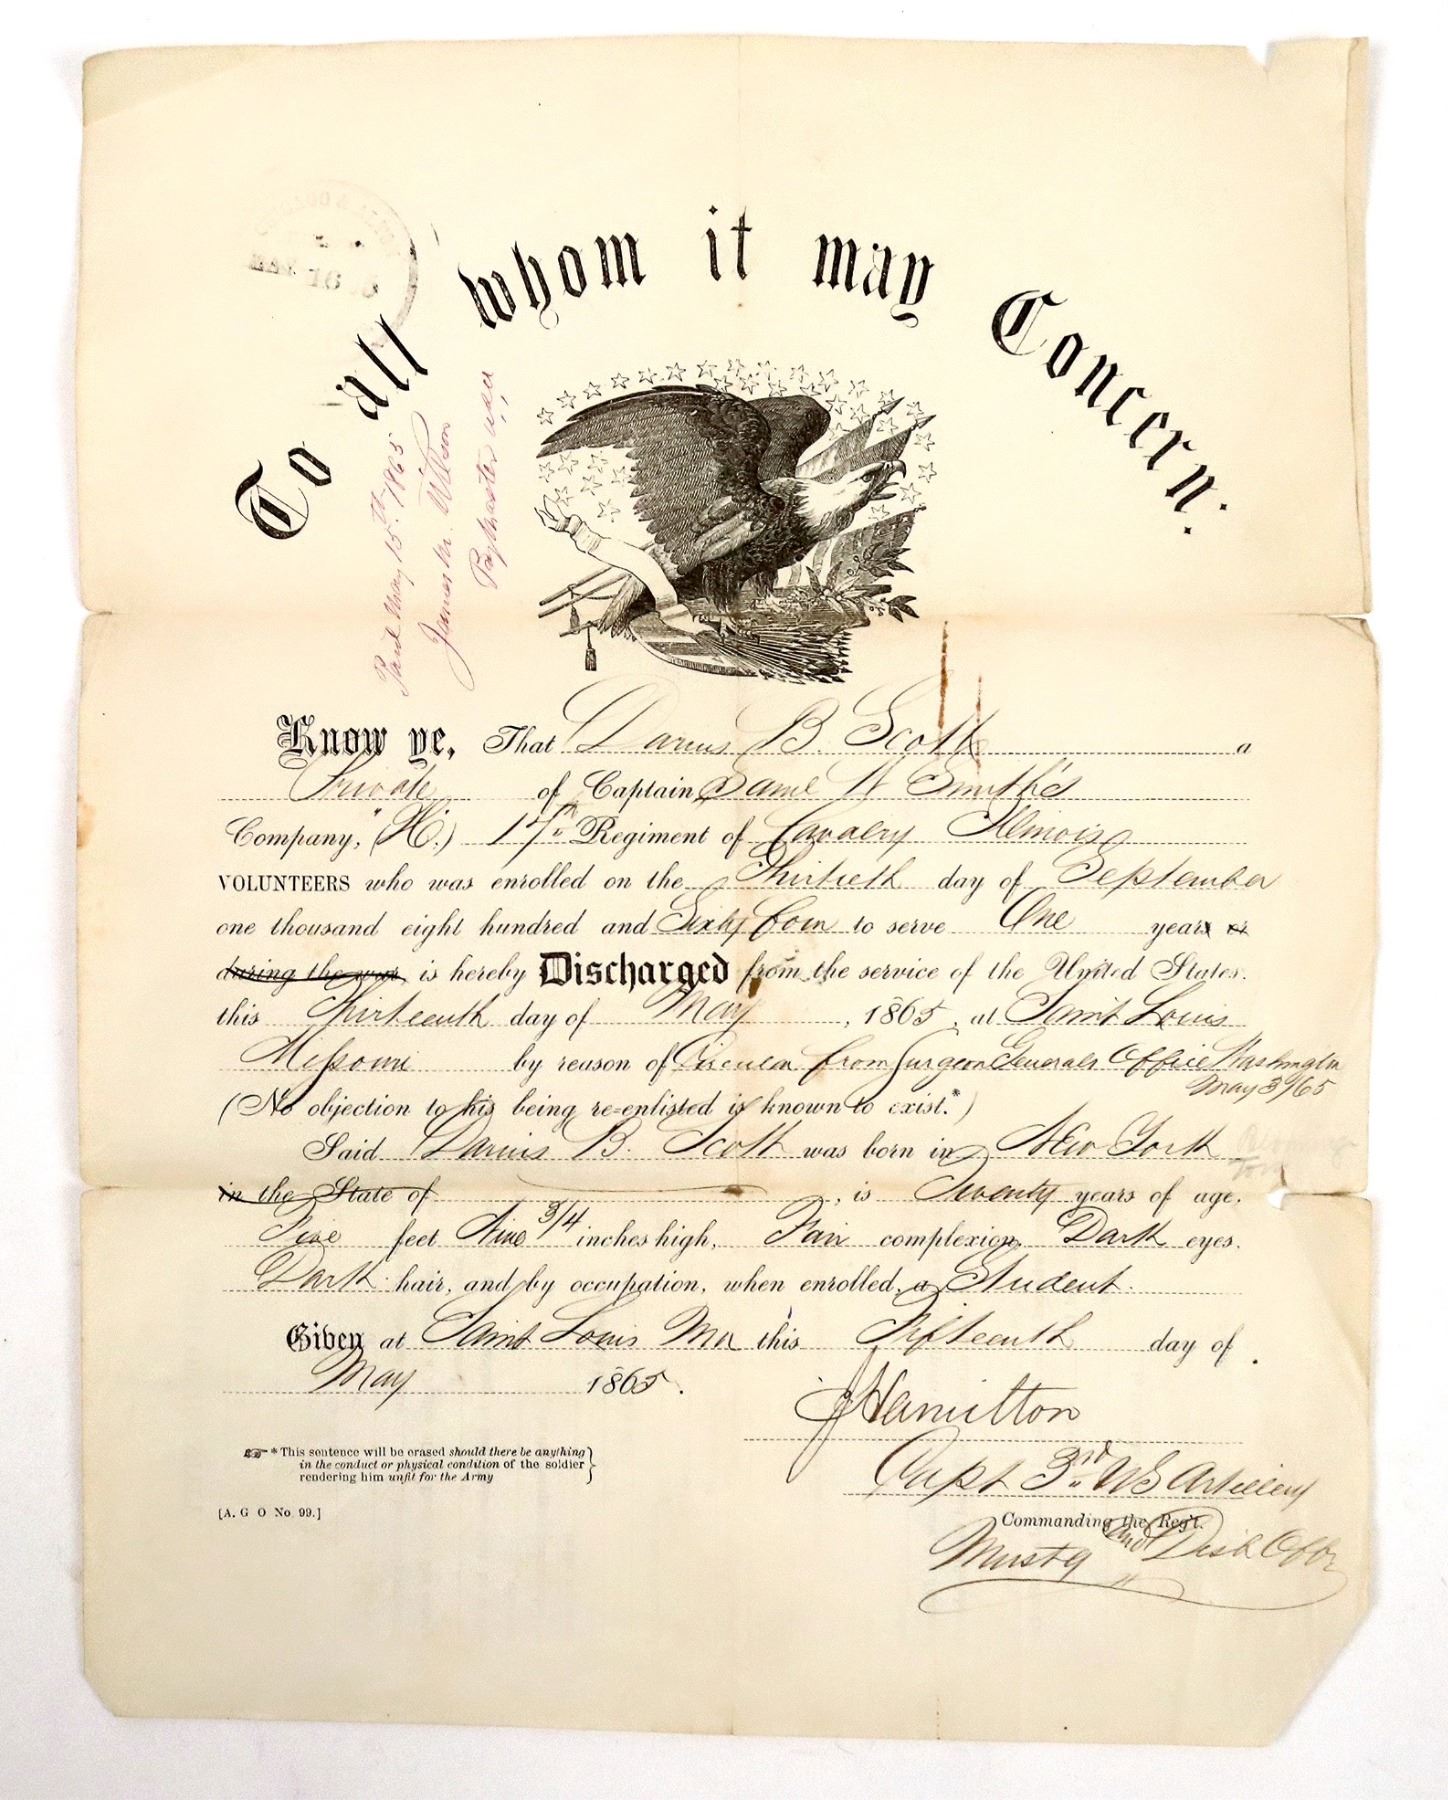 To all whom it may Concern:
Paid May 15th 1865
James M. Wilson
Paymaster U.S.A
Know ye, That Darius B. Scott a
Private of Captain Saml H Smith's
Company, "(H.) 17th Regiment of Cavalry Illinois
VOLUNTEERS who was enrolled on the Thirtieth day of September
one thousand eight hundred and Sixty four to serve One years or
during the war, is hereby Discharged from the service of the United States.
this Thirteenth day of May, 1865, at Saint Louis
Missouri by reason of Circular from Surgeon Generals Office Washington
May 3/65
(No objection to his being re-enlisted is known to exist.*)
Said Darius B. Scott was born in New York
in the State of, is Twenty years of age.
Five feet Nine 3/4 inches high, Fair complexion, Dark eyes.
Dark hair, and by occupation, when enrolled, a Student.
Given at Saint Louis Mo this Fifteenth day of
May 1865.
J Hamilton
Capt 3rd US Artillery
Commanding the Reg't.
Mustg and Disb Offr
* This sentence will be erased should there be anything
in the conduct or physical condition of the soldier
rendering him unfit for the Army
[A. G O No. 99.]